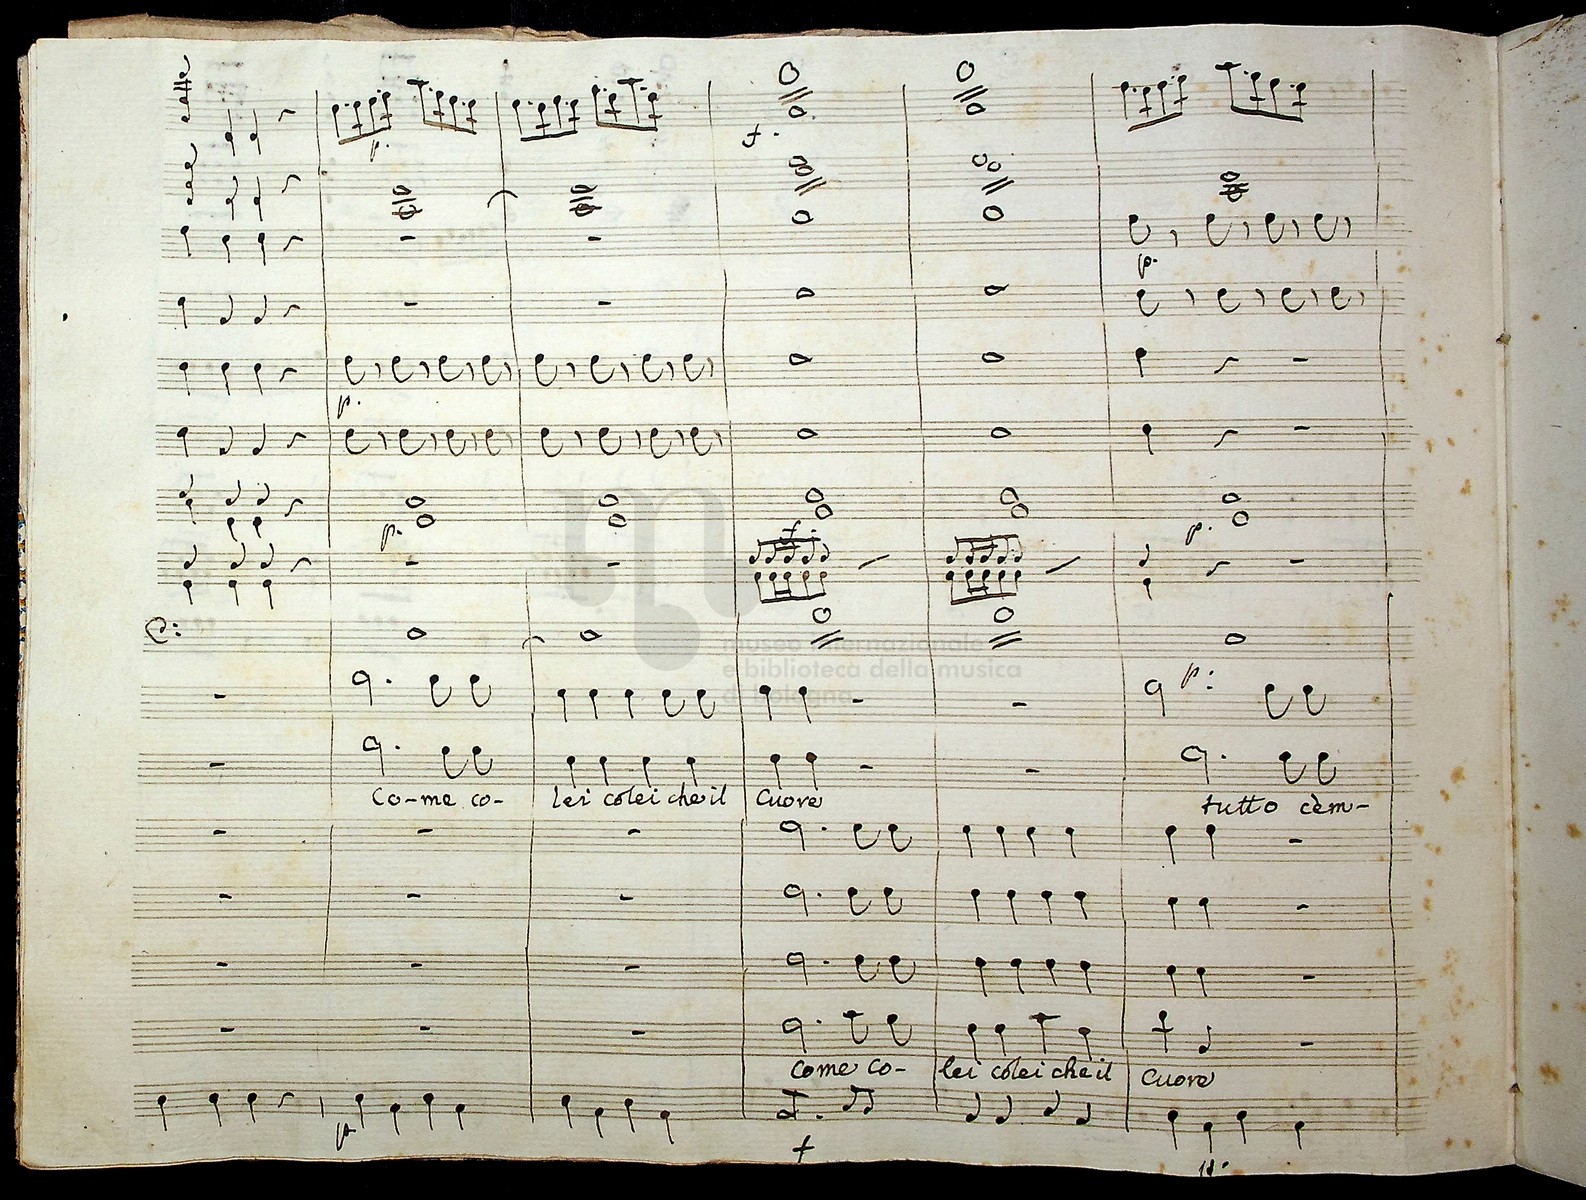 p.
f.
p.
p.
p.
f.
p.
museo internazionale
e biblioteca della musica
di bologna
p:
Co-me co- lei colei che il Cuore tutto cèm-
come co- lei colei che il Cuore
p
f